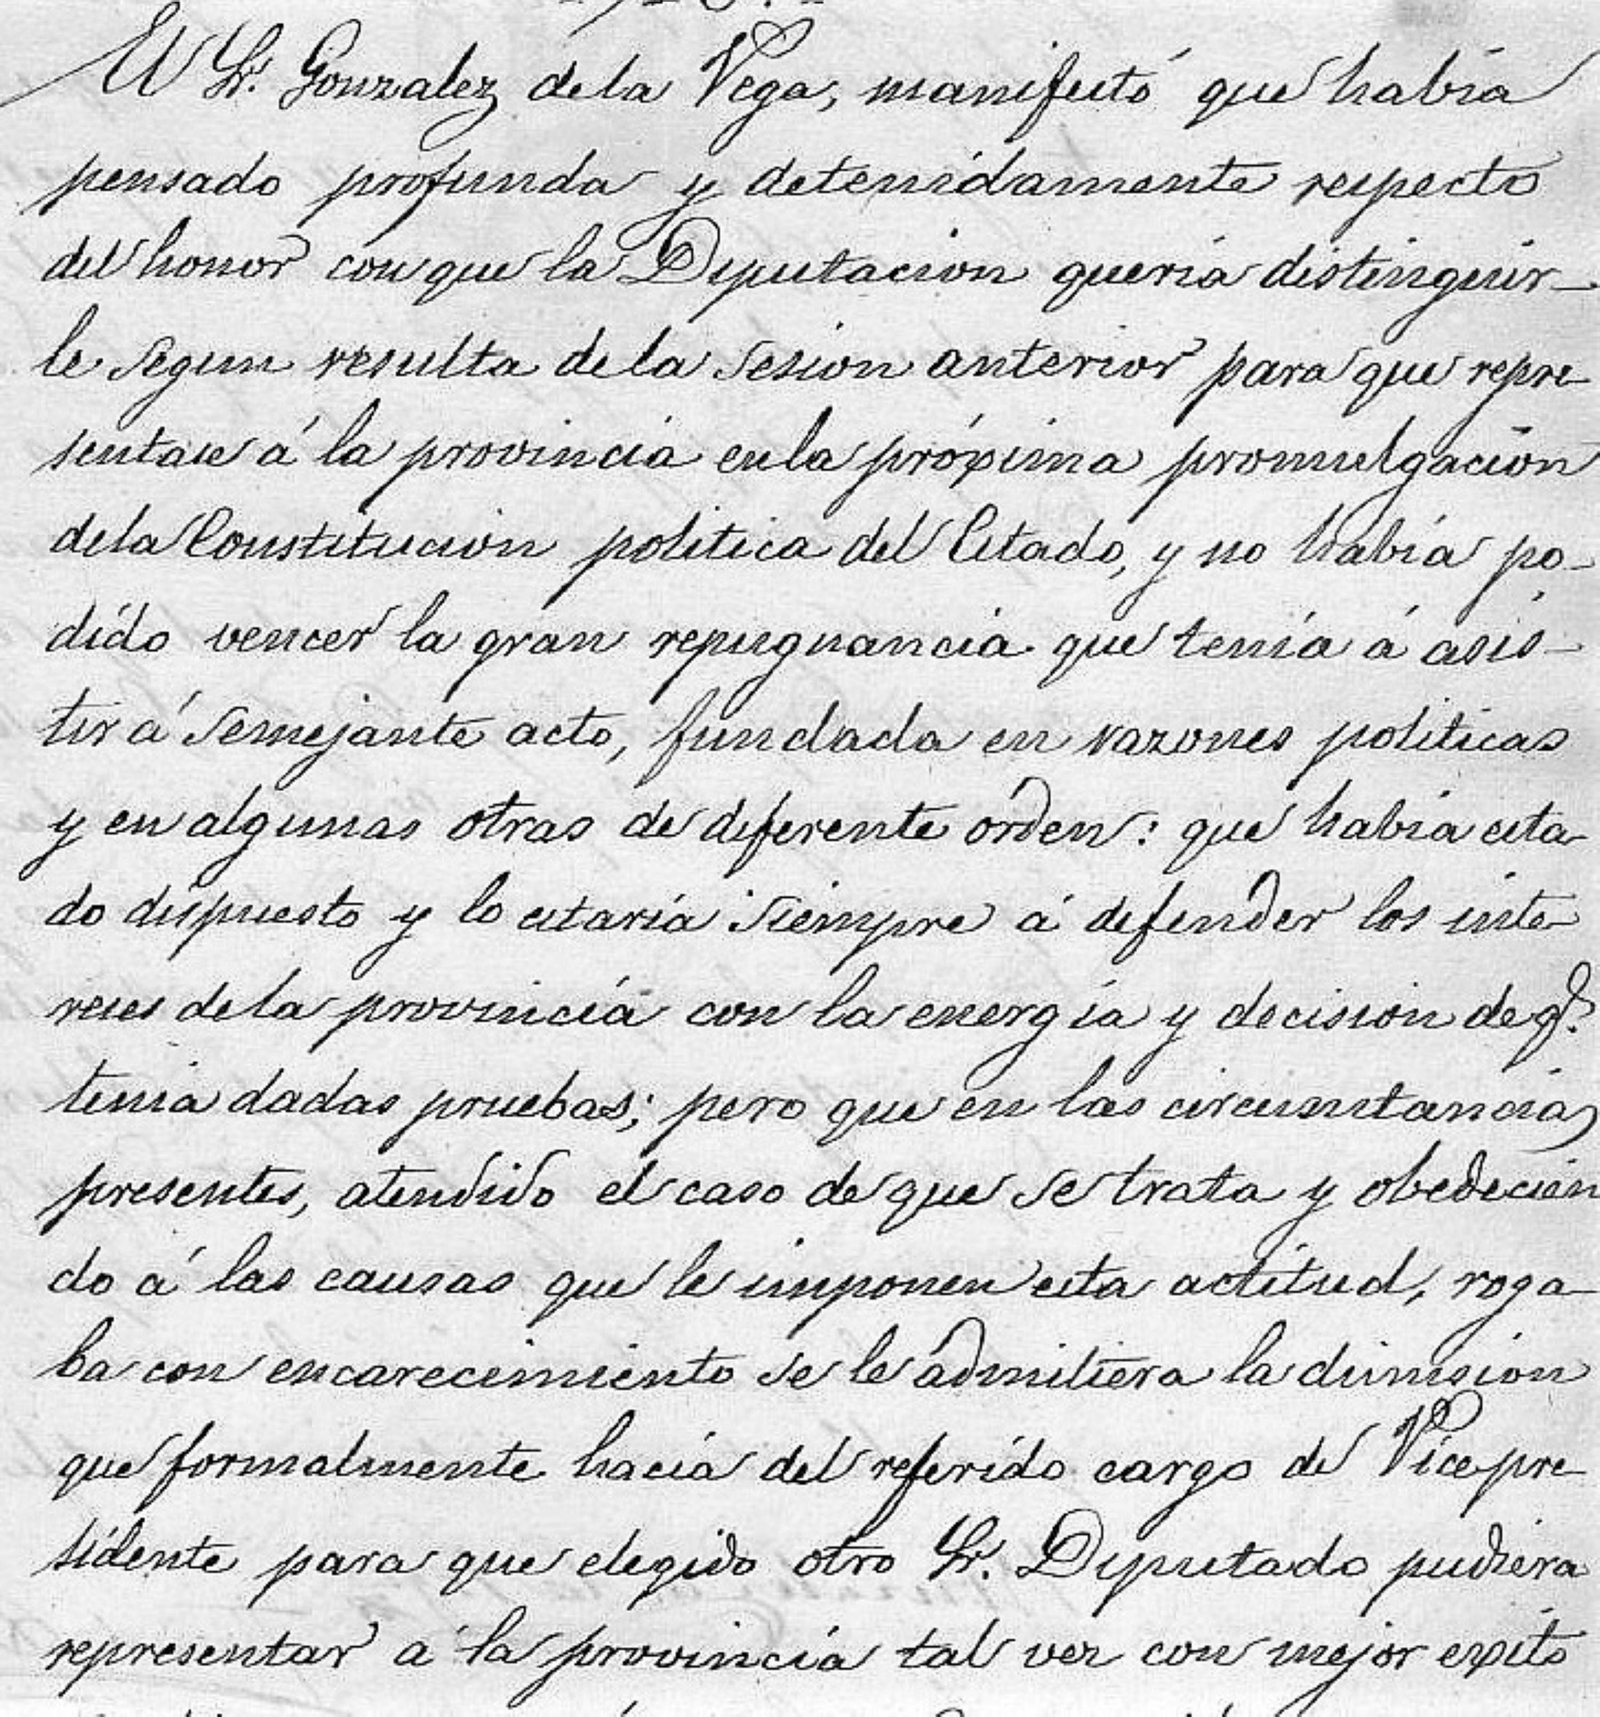 El Sr. Gonzalez de la Vega, manifestó que había
pensado profunda y detenidamente respecto
del honor con que la Diputacion queria distinguir-
le segun resulta de la sesion anterior para que repre-
sentase á la provincia en la próxima promulgacion
de la Constitucion politica del Estado, y no había po-
dido vencer la gran repugnancia que tenía á asis-
tir á semejante acto, fundada en razones politicas
y en algunas otras de diferente orden: que había esta-
do dispuesto y lo estaría siempre á defender los inte-
reses de la provincia con la energía y decision de q.e
tenia dadas pruebas; pero que en las circunstancias
presentes, atendido el caso de que se trata y obedecien
do á las causas que le imponen esta actitud, roga-
ba con encarecimiento se le admitiera la dimision
que formalmente hacía del referido cargo de Vicepre-
sidente para que elegido otro Sr. Diputado pudiera
representar á la provincia tal vez con mejor exito